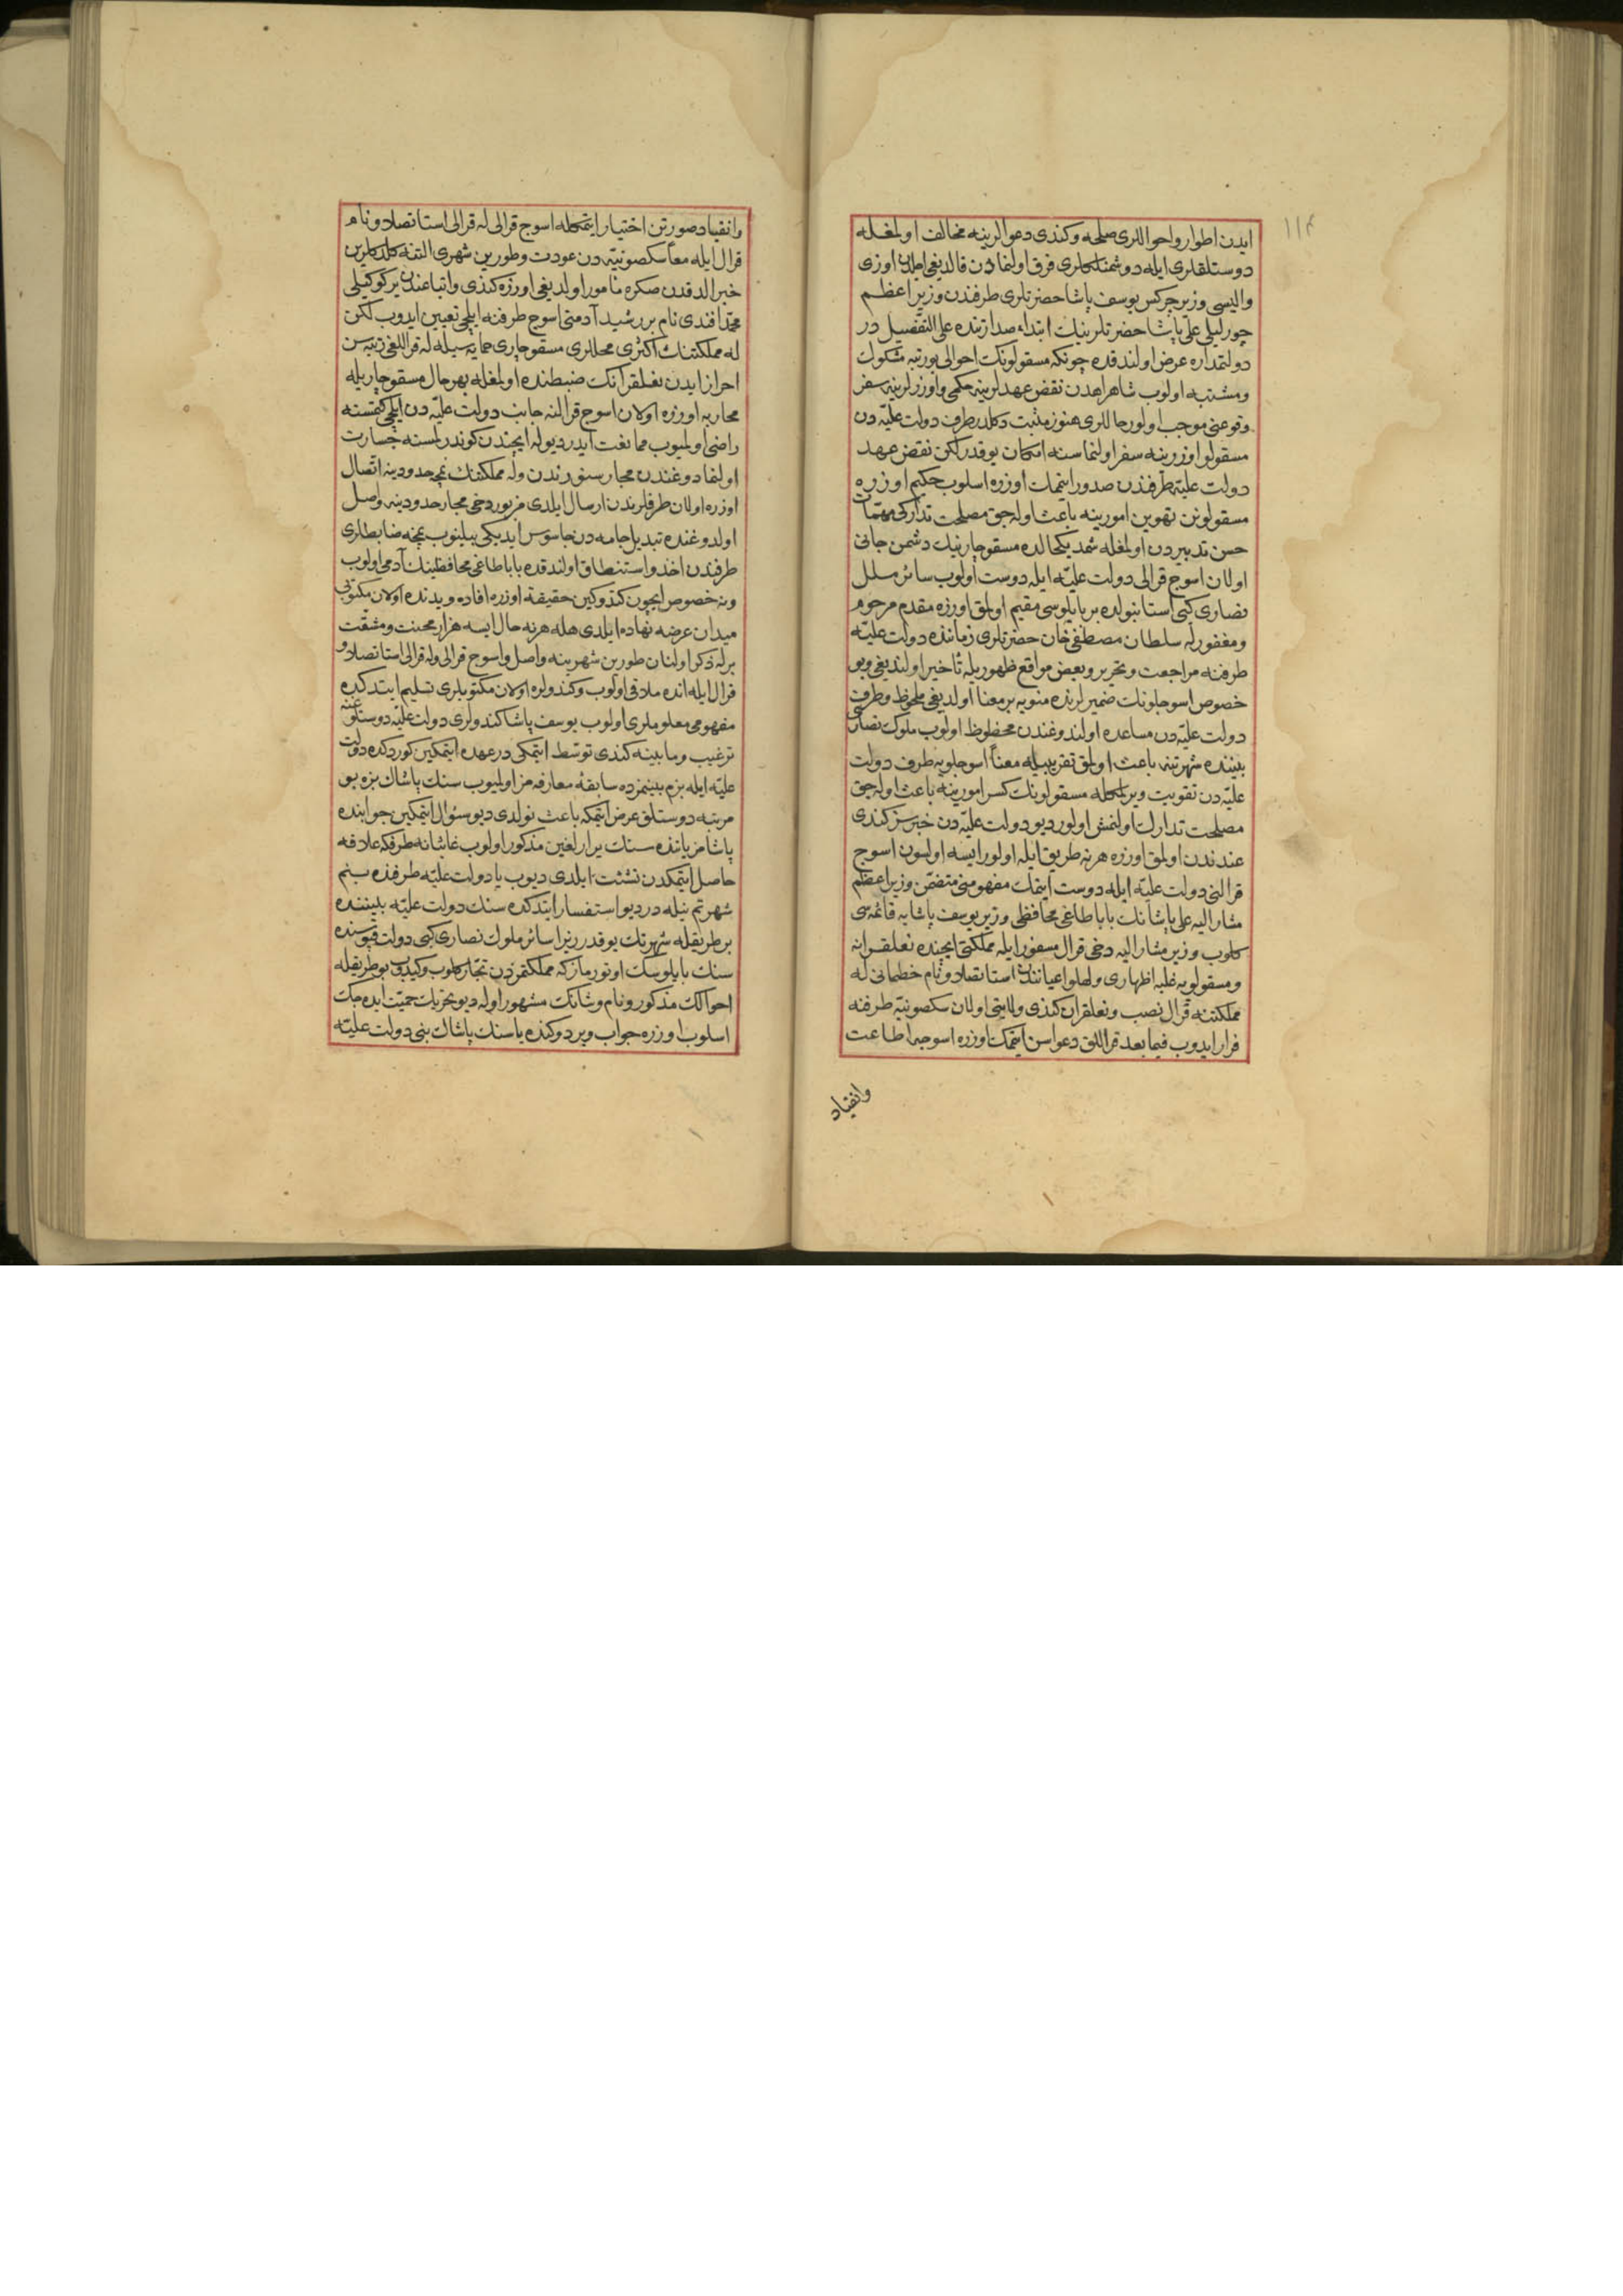 ١١٤
ایدن اطوار و احواللری صلحه و کندی دعوالرینه مخالف اولمغله
دوستلقلری ایله دوشمنلکلری فرق اولنمادن قالدیغی اوزی
والیسی وزیر چرکس یوسف پاشا حضرتلری طرفندن وزیر اعظم
چورلیلی علی پاشا حضرتلرینك ابتداء صدارتنده علی التفصیل در
دولتمداره عرض اولندقده چونکه مسقولونك احوالی بو رتبه مشکوك
و مشتبه اولوب شاهراهدن نقض عهدلرینه حکمی و اوزرلرینه سفر
وقوعنی موجب اولور حاللری هنوز مثبت دکلدر طرف دولت علیّه دن
مسقولو اوزرینه سفر اولنماسنه امکان یوقدر لکن نقض عهد
دولت علیّه طرفندن صدور ایتمامك اوزره اسلوب حکیم اوزره
مسقولونن تهوین امورینه باعث اوله جق مصلحت تدارکی مهمّات
حسن تدبیردن اولمغله شمدیکی حالده مسقو چارینك دشمن جانی
اولان اسوج قرالی دولت علیّه ایله دوست اولوب سائر ملل
نصاری کبی استانبولده بر بایلوسی مقیم اولمق اوزره مقدم مرحوم
و مغفور له سلطان مصطفی خان حضرتلری زماننده دولت علیّه
طرفنه مراجعت و تحریر و بعض مواقع ظهوریله تأخیر اولندیغی و بو
خصوص اسوجلونك ضمیرلرنده منویه بر معنا اولدیغی ملحوظ و طرف
دولت علیّه دن مساعده اولندوغندن محظوظ اولوب ملوك نصاری
بیننده شهرتنه باعث اولمق تقریبیله معناً اسوجلویه طرف دولت
علیّه دن تقویت ویرلمکله مسقولونك کسر امورینه باعث اوله جق
مصلحت تدارك اولنمش اولور دیو دولت علیّه دن خبرسز کندی
عندندن اولمق اوزره هر نه طریق ایله اولور ایسه اولسون اسوج
قرالنی دولت علیّه ایله دوست ایتمك مفهومنی متضمّن وزیر اعظم
مشار الیه علی پاشانك باباطاغی محافظی وزیر یوسف پاشایه قائمه سی
کلوب وزیر مشار الیه دخی قرال مسفور ایله مملکتی ایچنده نعلقرانه
و مسقولویه غلبه اظهاری و لهلو اعیانندن استانصلاو نام خطمانی له
مملکتنه قرال نصب و نعلقران کندی ولایتی اولان سکصونیّه طرفنه
فرار ایدوب فیما بعد قراللق دعواسن ایتمامك اوزره اسوجه اطاعت
وانقیاد
وانقیاد صورتن اختیار ایتمکله اسوج قرالی له قرالی استانصلاو نام
قرال ایله معاً سکصونیّه دن عودت و طورین شهری التنه کلدکلرین
خبر الدقدن صکره مأمور اولدیغی اوزره کندی و اتباعندن یرکوکیلی
محمّد افندی نام بر رشید آدمنی اسوج طرفنه ایلچی تعیین ایدوب لکن
له مملکتنك اکثری محللری مسقو چاری حمایه سیله له قراللغی رتبه سن
احراز ایدن نعلقرانك ضبطنده اولمغله بهر حال مسقو چاریله
محاربه اوزره اولان اسوج قرالنه جانب دولت علیّه دن ایلچی کیتمسنه
راضی اولمیوب ممانعت ایدر دیو له ایچندن کوندرلمسنه جسارت
اولنمادوغندن مجار سنورندن و له مملکتنك نمچه حدودینه اتصال
اوزره اولان طرفلریندن ارسال ایلدی مزبور دخی مجار حدودینه واصل
اولدوغنده تبدیل جامه دن جاسوس ایدیکی بیلینوب نمچه ضابطلری
طرفندن اخذ و استنطاق اولندقده باباطاغی محافظینك آدمی اولوب
و نه خصوص ایچون کتدوکین حقیقة اوزره افاده و یدنده اولان مکتوبی
میدان عرضه نهاده ایلدی هله هر نه حال ایسه هزار محنت و مشقّت
برله ذکر اولنان طورین شهرینه واصل و اسوج قرالی و له قرالی استانصلاو
قرال ایله انده ملاقی اولوب و کندولره اولان مکتوبلری تسلیم ایتدکده
مفهومی معلوملری اولوب یوسف پاشا کندولری دولت علیّه دوستلوغنه
ترغیب و مابینه کندی توسّط ایتمکی در عهده ایتمکین کوردکده دولت
علیّه ایله بزم بینمزده سابقۀ معارفه مز اولمیوب سنك پاشاك بزه بو
مرتبه دوستلق عرض ایتمکه باعث نولدی دیو سؤال ایتمکین جوابنده
پاشامز یاننده سنك یرارلغین مذکور اولوب غائبانه طرفکه علاقه
حاصل ایتمکدن نشئت ایلدی دیوب یا دولت علیّه طرفنده بنم
شهرتم نیله در دیو استفسار ایتدکده سنك دولت علیّه بیننده
بر طریقله شهرتك یوقدر زیرا سائر ملوك نصاری کبی دولت قپوسنده
سنك بایلوسك اوتورماز که مملکتکزدن تجّار کلوب و کیدوب بو طریقله
احوالك مذکور و نام و شانك مشهور اوله دیو تحریك حمیّت ایده جك
اسلوب اوزره جواب ویردوکنده یا سنك پاشاك بنی دولت علیّه